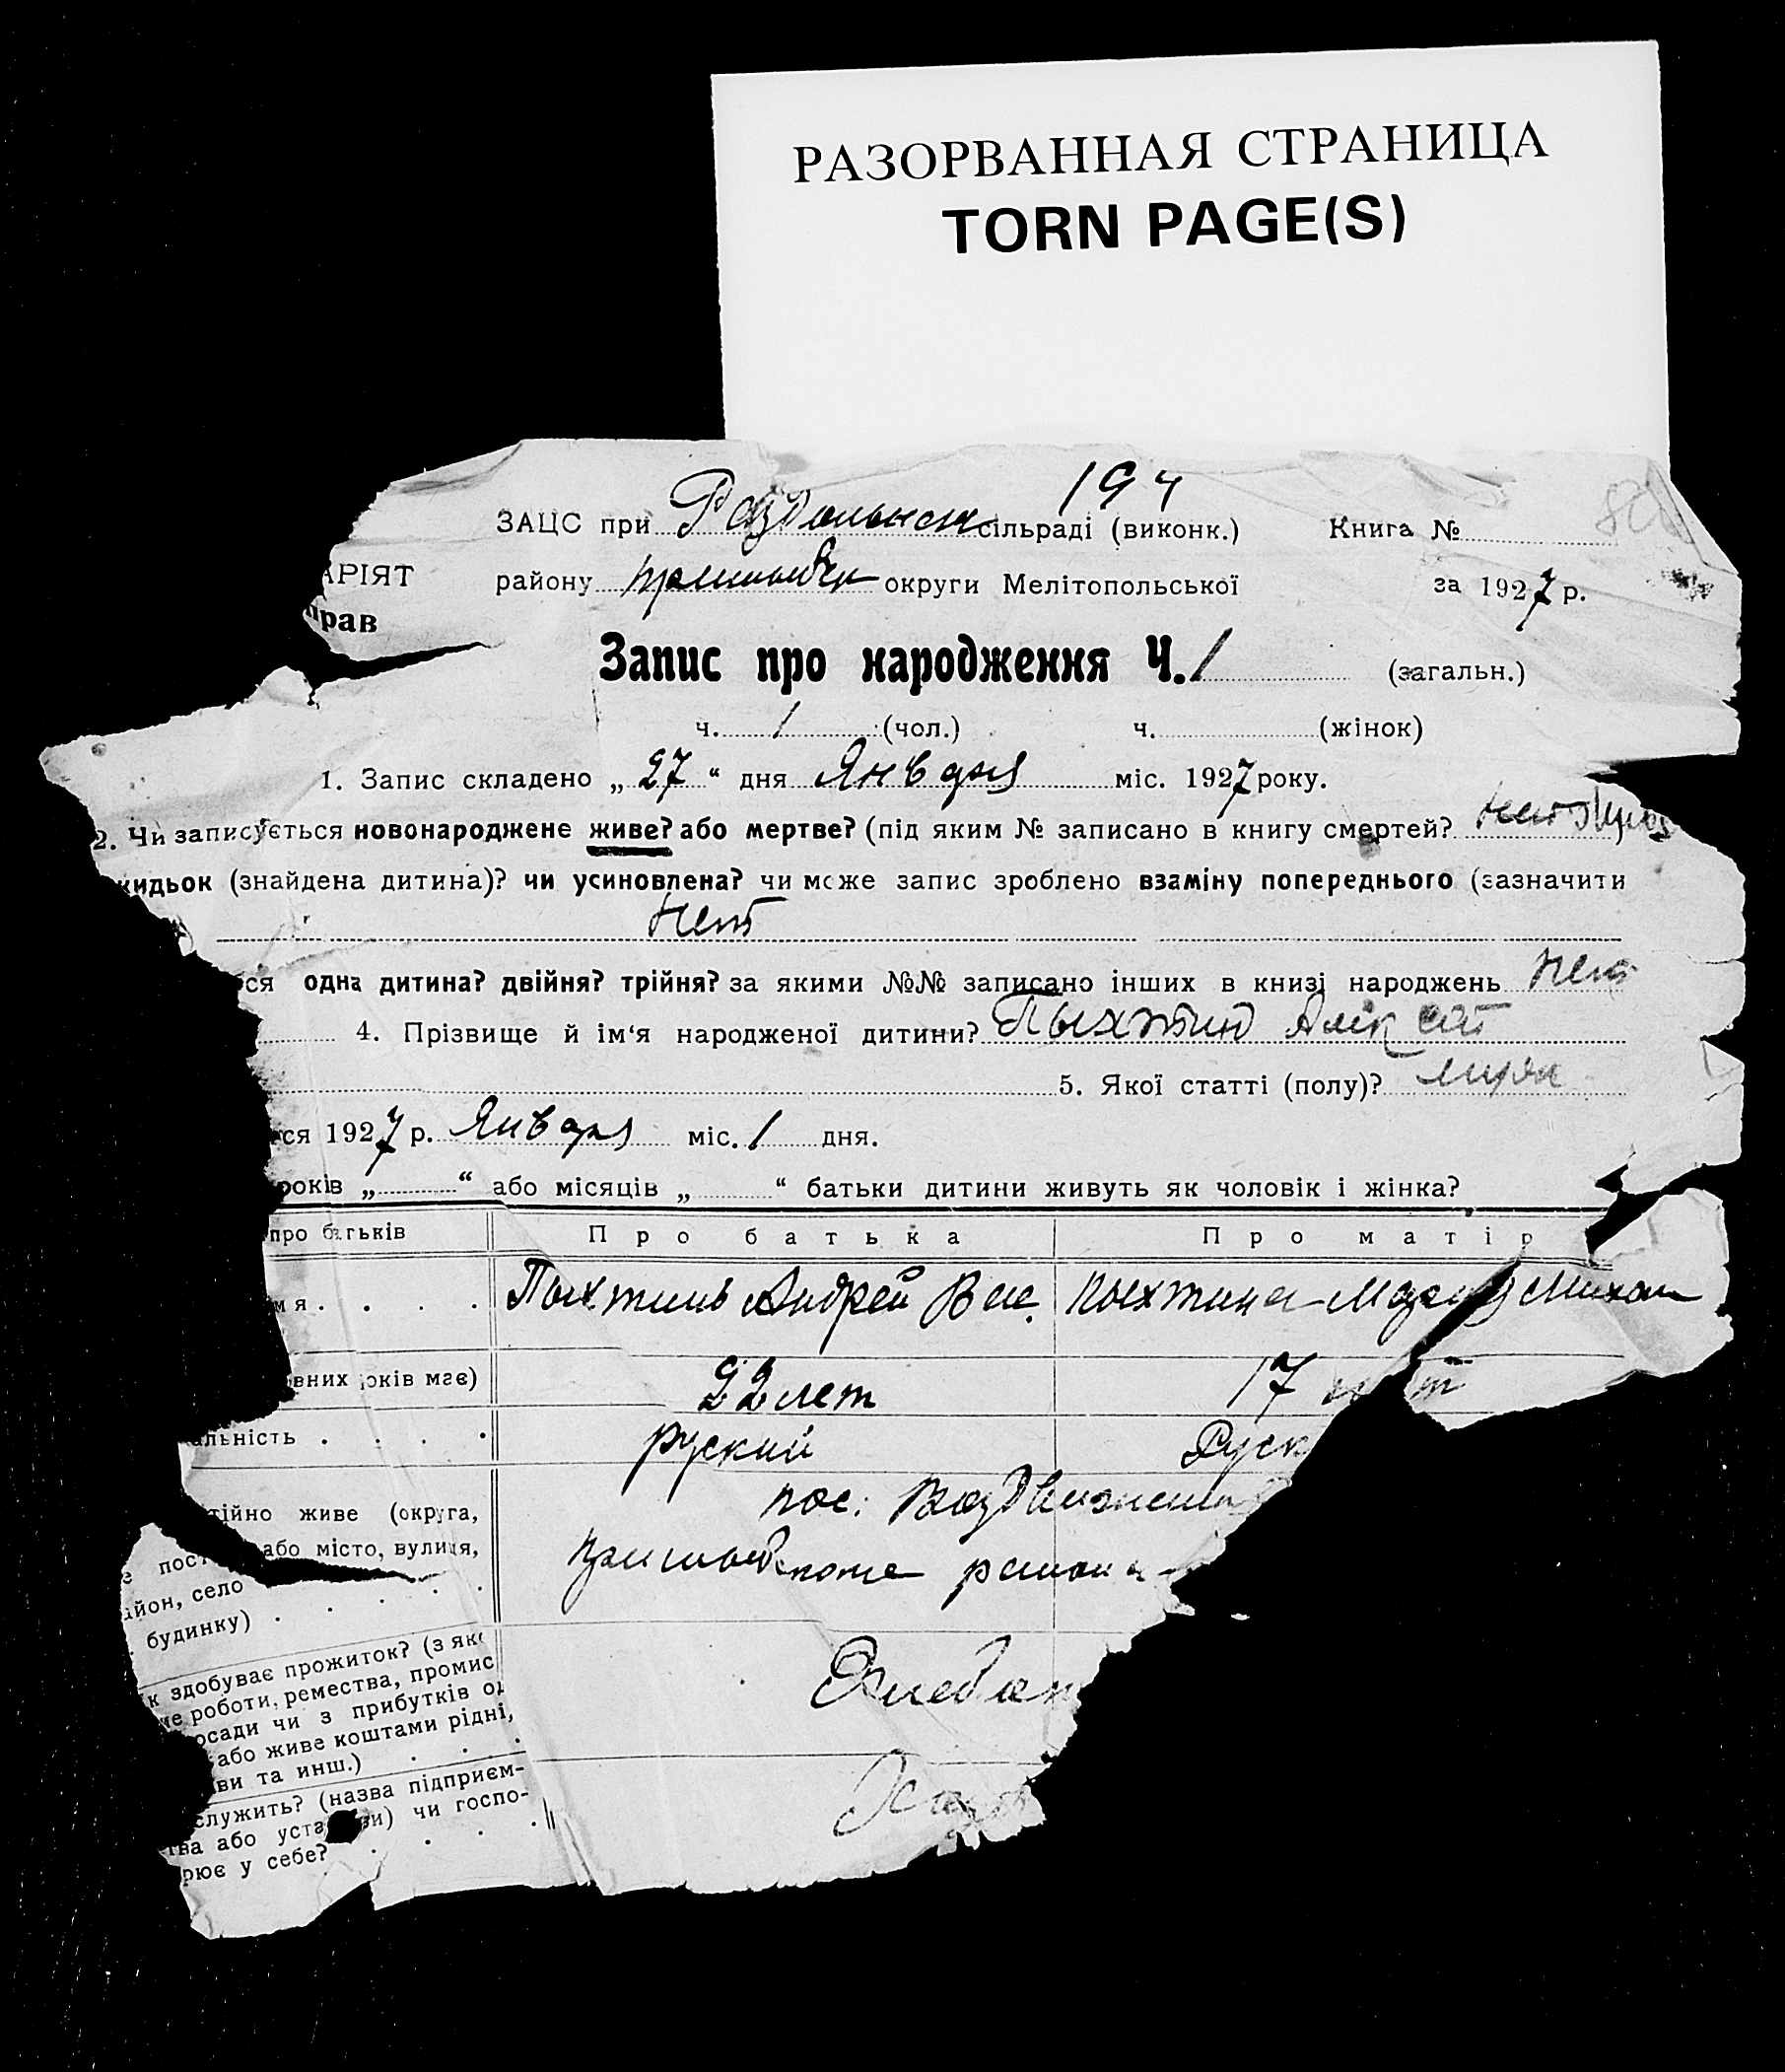 РАЗОРВАННАЯ СТРАНИЦА
TORN PAGE(S)
194
ЗАЦС при Роздольнен сільраді (виконк.) Книга №
АРІЯТ
району округи Мелітопольської за 1927 р.
прав
Запис про народження Ч. 1 (загальн.)
ч. 1 (чол.) ч. (жінок)
1. Запис складено „27“ дня Января міс. 1927 року.
2. Чи записується новонароджене живе? або мертве? (під яким № записано в книгу смертей? )
кидьок (знайдена дитина)? чи усиновлена? чи може запис зроблено взаміну попереднього (зазначити
нет
ся одна дитина? двійня? трійня? за якими №№ записано інших в книзі народжень нет
4. Прізвище й ім‘я народженої дитини? Пыхтин
5. Якої статті (полу)?
ся 1927 р. Января міс. 1 дня.
років „ “ або місяців „ “ батьки дитини живуть як чоловік і жінка?
про батьків Про батька Про матір
мя . . . . Пыхтинь Андрей Вас. Пыхтина Михаи
вних років має) 22 лет 17
альність . . . . руский Руск
пос. Воздвиженк
тійно живе (округа,
пост або місто, вулиця,
йон, село района
будинку) . . . .
к здобуває прожиток? (з яко
че роботи, ремества, промис
осади чи з прибутків од
або живе коштами рідні,
ви та инш.) . . .
Хлебоп
служить? (назва підприєм-
тва або устави) чи госпо-
рює у себе? . . . .